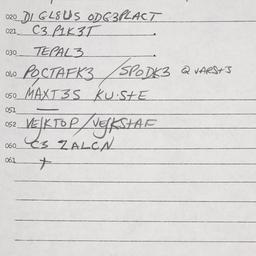 020 DI GL8US ODG3PLACT
021 C3 P1K3T
030 TEPAL3
040 POCTAFK3 / SPODK3 Q VARS+3
050 MAXT3S KU·S+E
051 —
052 VEJKTOP / VEJKS+AF
060 C3 ZALCN
061 +